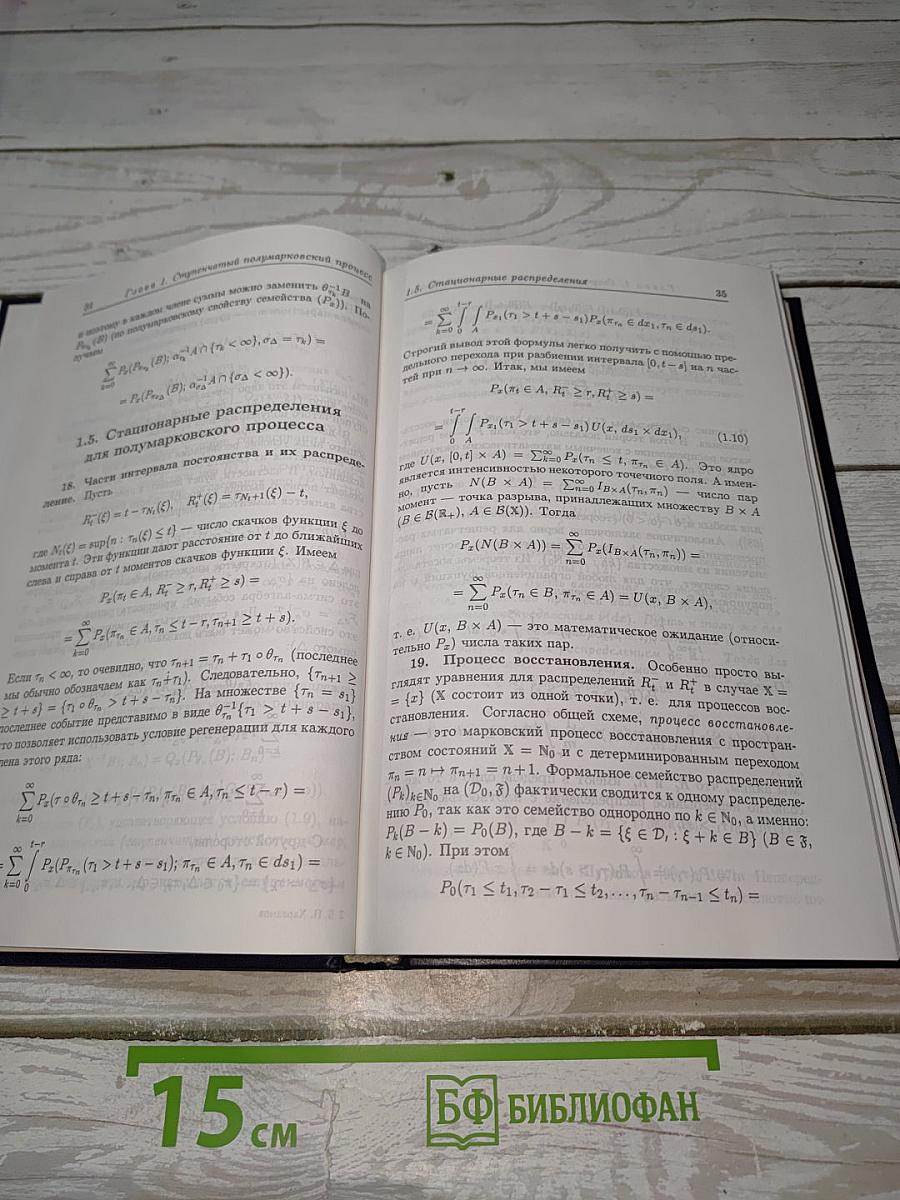 34 Глава 1. Ступенчатый полумарковский процесс
и поэтому в каждом члене суммы можно заменить θ_{τ_k}^{-1}B на
P_{π_{τ_k}}(B) (по полумарковскому свойству семейства (P_x)). По-
лучаем
∑_{k=0}^∞ P_x(P_{π_{τ_k}}(B); α_{τ_k}^{-1}A ∩ {τ_k < ∞, σ_Δ = τ_k}) =
= P_x(P_{π_{σ_Δ}}(B); α_{σ_Δ}^{-1}A ∩ {σ_Δ < ∞}).
1.5. Стационарные распределения
для полумарковского процесса
18. Части интервала постоянства и их распреде-
ление. Пусть
R_t^-(ξ) = t − τ_{N_t}(ξ), R_t^+(ξ) = τ_{N_t+1}(ξ) − t,
где N_t(ξ) = sup{n : τ_n(ξ) ≤ t} — число скачков функции ξ до
момента t. Эти функции дают расстояние от t до ближайших
слева и справа от t моментов скачков функции ξ. Имеем
P_x(π_t ∈ A, R_t^- ≥ r, R_t^+ ≥ s) =
= ∑_{k=0}^∞ P_x(π_{τ_n} ∈ A, τ_n ≤ t − r, τ_{n+1} ≥ t + s).
Если τ_n < ∞, то очевидно, что τ_{n+1} = τ_n + τ_1 ∘ θ_{τ_n} (последнее
мы обычно обозначаем как τ_n∔τ_1). Следовательно, {τ_{n+1} ≥
≥ t + s} = {τ_1 ∘ θ_{τ_n} > t + s − τ_n}. На множестве {τ_n = s_1}
последнее событие представимо в виде θ_{τ_n}^{-1}{τ_1 > t + s − s_1},
что позволяет использовать условие регенерации для каждого
члена этого ряда:
∑_{k=0}^∞ P_x(τ ∘ θ_{τ_n} ≥ t + s − τ_n, π_{τ_n} ∈ A, τ_n ≤ t − r) =
= ∑_{k=0}^∞ ∫_0^{t−r} P_x(P_{π_{τ_n}}(τ_1 > t + s − s_1); π_{τ_n} ∈ A, τ_n ∈ ds_1) =
1.5. Стационарные распределения 35
= ∑_{k=0}^∞ ∫_0^{t−r} ∫_A P_{x_1}(τ_1 > t + s − s_1)P_x(π_{τ_n} ∈ dx_1, τ_n ∈ ds_1).
Строгий вывод этой формулы легко получить с помощью пре-
дельного перехода при разбиении интервала [0, t − s] на n час-
тей при n → ∞. Итак, мы имеем
P_x(π_t ∈ A, R_t^- ≥ r, R_t^+ ≥ s) =
= ∫_0^{t−r} ∫_A P_{x_1}(τ_1 > t + s − s_1) U(x, ds_1 × dx_1), (1.10)
где U(x, [0, t] × A) = ∑_{k=0}^∞ P_x(τ_n ≤ t, π_{τ_n} ∈ A). Это ядро
является интенсивностью некоторого точечного поля. А имен-
но, пусть N(B × A) = ∑_{n=0}^∞ I_{B×A}(τ_n, π_n) — число пар
момент — точка разрыва, принадлежащих множеству B × A
(B ∈ B(ℝ_+), A ∈ B(X)). Тогда
P_x(N(B × A)) = ∑_{n=0}^∞ P_x(I_{B×A}(τ_n, π_n)) =
= ∑_{n=0}^∞ P_x(τ_n ∈ B, π_{τ_n} ∈ A) = U(x, B × A),
т. е. U(x, B × A) — это математическое ожидание (относи-
тельно P_x) числа таких пар.
19. Процесс восстановления. Особенно просто вы-
глядят уравнения для распределений R_t^- и R_t^+ в случае X =
= {x} (X состоит из одной точки), т. е. для процессов вос-
становления. Согласно общей схеме, процесс восстановле-
ния — это марковский процесс восстановления с простран-
ством состояний X = ℕ_0 и с детерминированным переходом
π_n = n ↦ π_{n+1} = n + 1. Формальное семейство распределений
(P_k)_{k∈ℕ_0} на (D_0, 𝔉) фактически сводится к одному распределе-
нию P_0, так как это семейство однородно по k ∈ ℕ_0, а именно:
P_k(B − k) = P_0(B), где B − k = {ξ ∈ D, : ξ + k ∈ B} (B ∈ 𝔉,
k ∈ ℕ_0). При этом
P_0(τ_1 ≤ t_1, τ_2 − τ_1 ≤ t_2, ..., τ_n − τ_{n−1} ≤ t_n) =
15 см
БФ БИБЛИОФАН